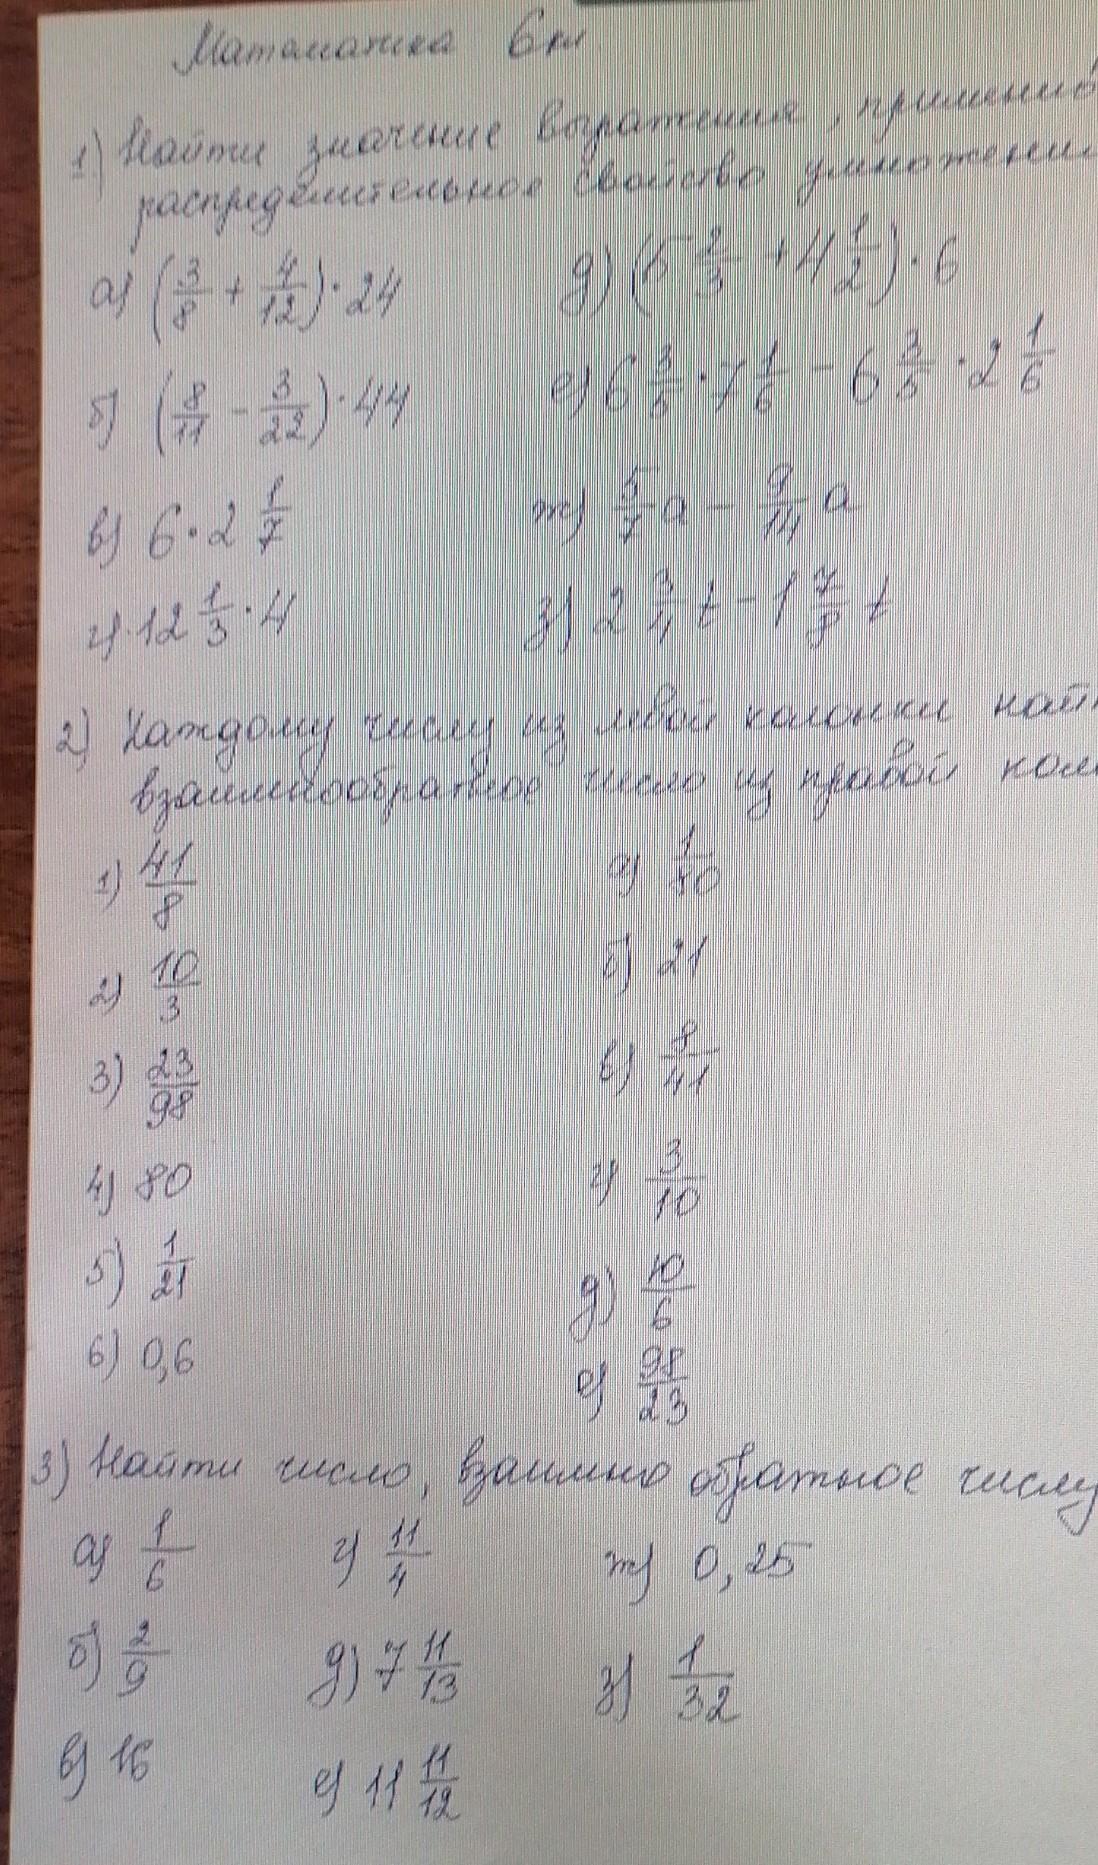 Математика 6 кл
1) Найти значение выражения, применив
распределительное свойство умножени
а) (3/8 + 4/12) · 24 д) (5 2/3 + 4 1/2) · 6
б) (8/11 - 3/22) · 44 е) 6 3/5 · 7 1/6 - 6 3/5 · 2 1/6
в) 6 · 2 1/7 ж) 5/7 a - 9/14 a
г) 12 1/3 · 4 з) 2 3/4 t - 1 7/8 t
2) Каждому числу из левой колонки най
взаимнообратное число из правой кол
1) 41/8 а) 1/80
2) 10/3 б) 21
3) 23/98 в) 8/41
4) 80 г) 3/10
5) 1/21 д) 10/6
6) 0,6 е) 98/23
3) Найти число, взаимно обратное числу
а) 1/6 г) 11/4 ж) 0,25
б) 2/9 д) 7 11/13 з) 1/32
в) 16 е) 11 11/12